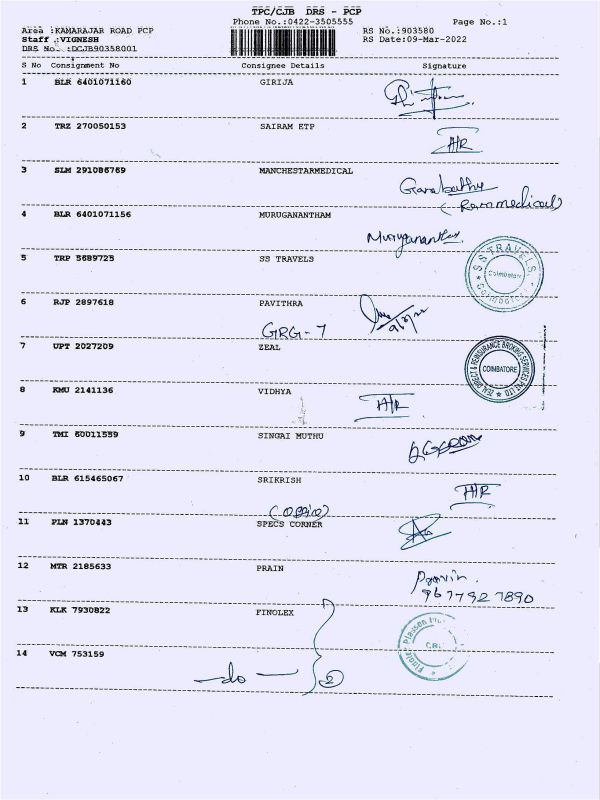 TPC/CJB DRS - PCP
Phone No.:0422-3505555 Page No.:1
Area :KAMARAJAR ROAD PCP RS No.:903580
Staff :VIGNESH RS Date:09-Mar-2022
DRS No. :DCJB90358001
S No Consignment No Consignee Details Signature
1 BLR 6401071160 GIRIJA
2 TRZ 270050153 SAIRAM ETP
H/R
3 SLM 291086769 MANCHESTARMEDICAL
(Rammedical)
4 BLR 6401071156 MURUGANANTHAM
5 TRP 5689725 SS TRAVELS
S S TRAVELS Coimbatore
6 RJP 2897618 PAVITHRA
GRG-7
7 UPT 2027209 ZEAL
ZEAL DIRECT & REINSURANCE BROKING SERVICES PVT LTD COIMBATORE
8 KMU 2141136 VIDHYA
H/R
9 TMI 60011559 SINGAI MUTHU
10 BLR 615465067 SRIKRISH
H/R
11 PLN 1370443 SPECS CORNER
12 MTR 2185633 PRAIN
Pravin.
9677927890
13 KLK 7930822 FINOLEX
14 VCM 753159
-do-
2